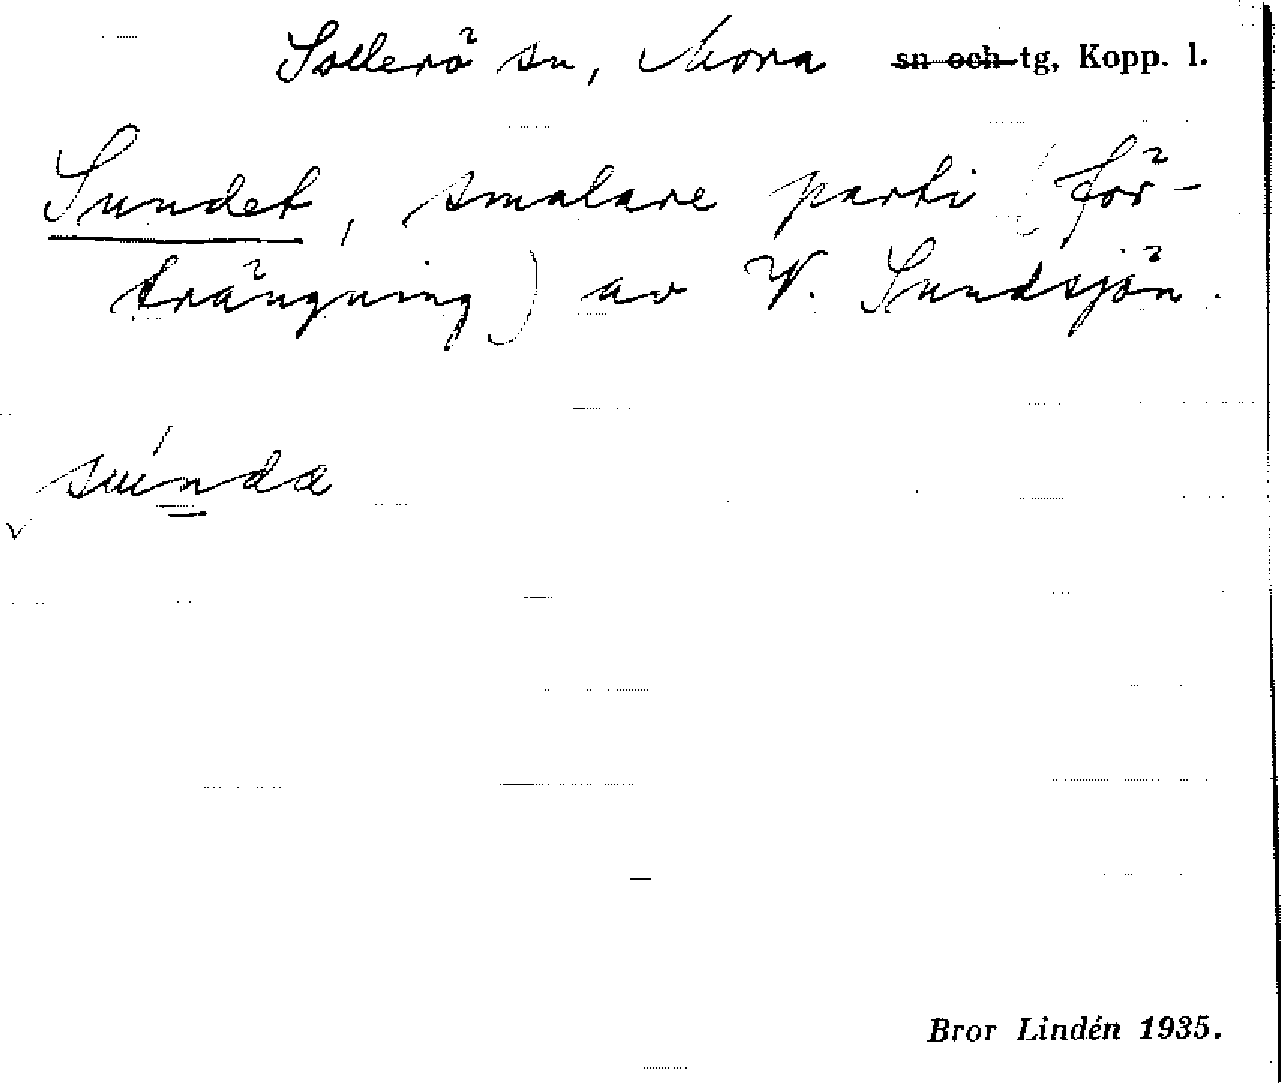 Sollerö sn, Mora ~~sn och~~ tg, Kopp. l.
Sundet, smalare parti (för-
trängning) av V. Sundsjön.
súnda
v
Bror Lindén 1935.